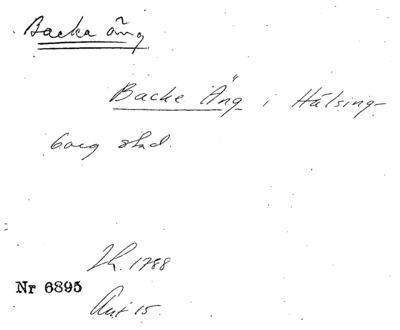 Backa äng
Backe Äng i Hälsing-
borg stad.
Lh. 1788
Nr 6895
Akt 15.